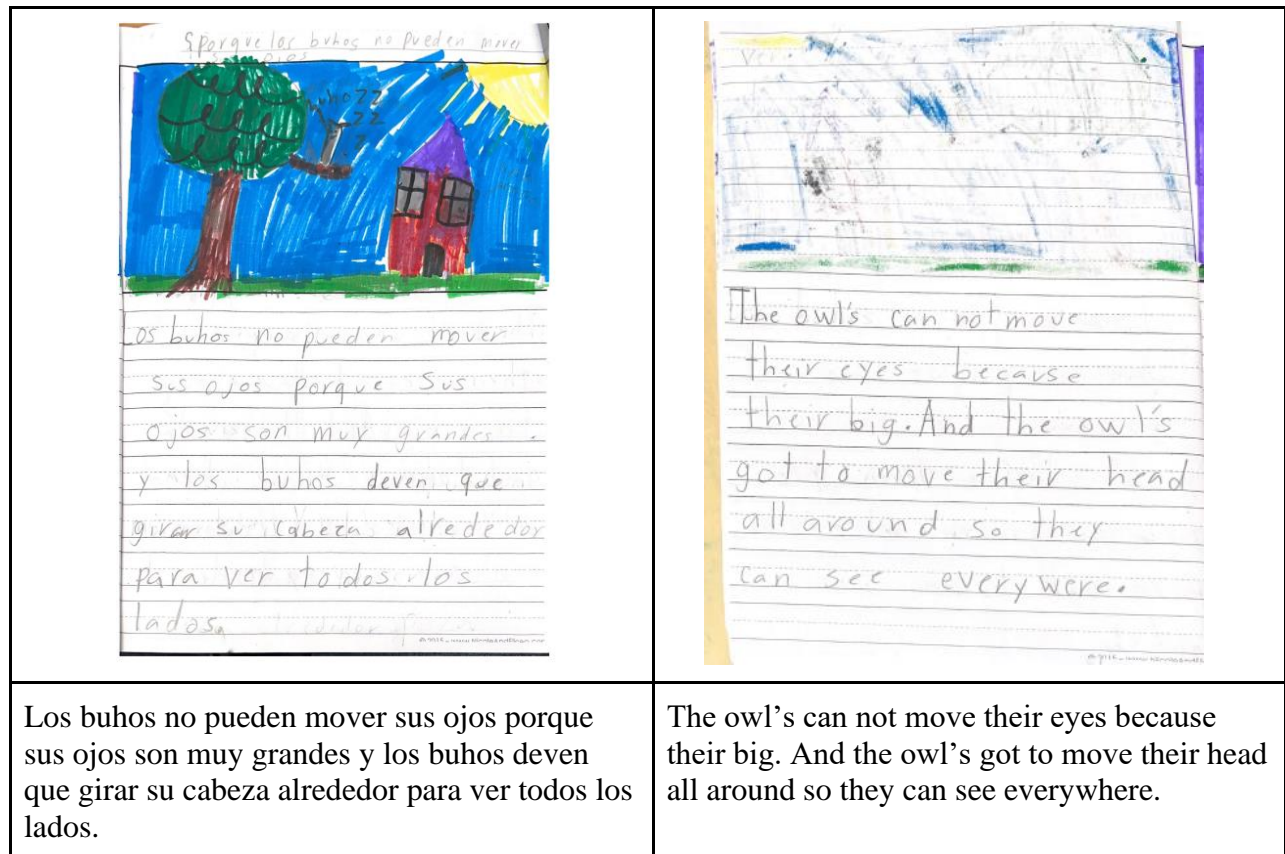 ¿porque los buhos no pueden mover
sus ojos
buhozz
zz
z
Los buhos no pueden mover
sus ojos porque sus
ojos son muy grandes.
y los buhos deven que
girar su cabeza alrededor
para ver todos los
lados.
ver.
The owl's can not move
their eyes because
their big. And the owl's
got to move their head
all around so they
can see everywere.
Los buhos no pueden mover sus ojos porque
sus ojos son muy grandes y los buhos deven
que girar su cabeza alrededor para ver todos los
lados.
The owl's can not move their eyes because
their big. And the owl's got to move their head
all around so they can see everywhere.